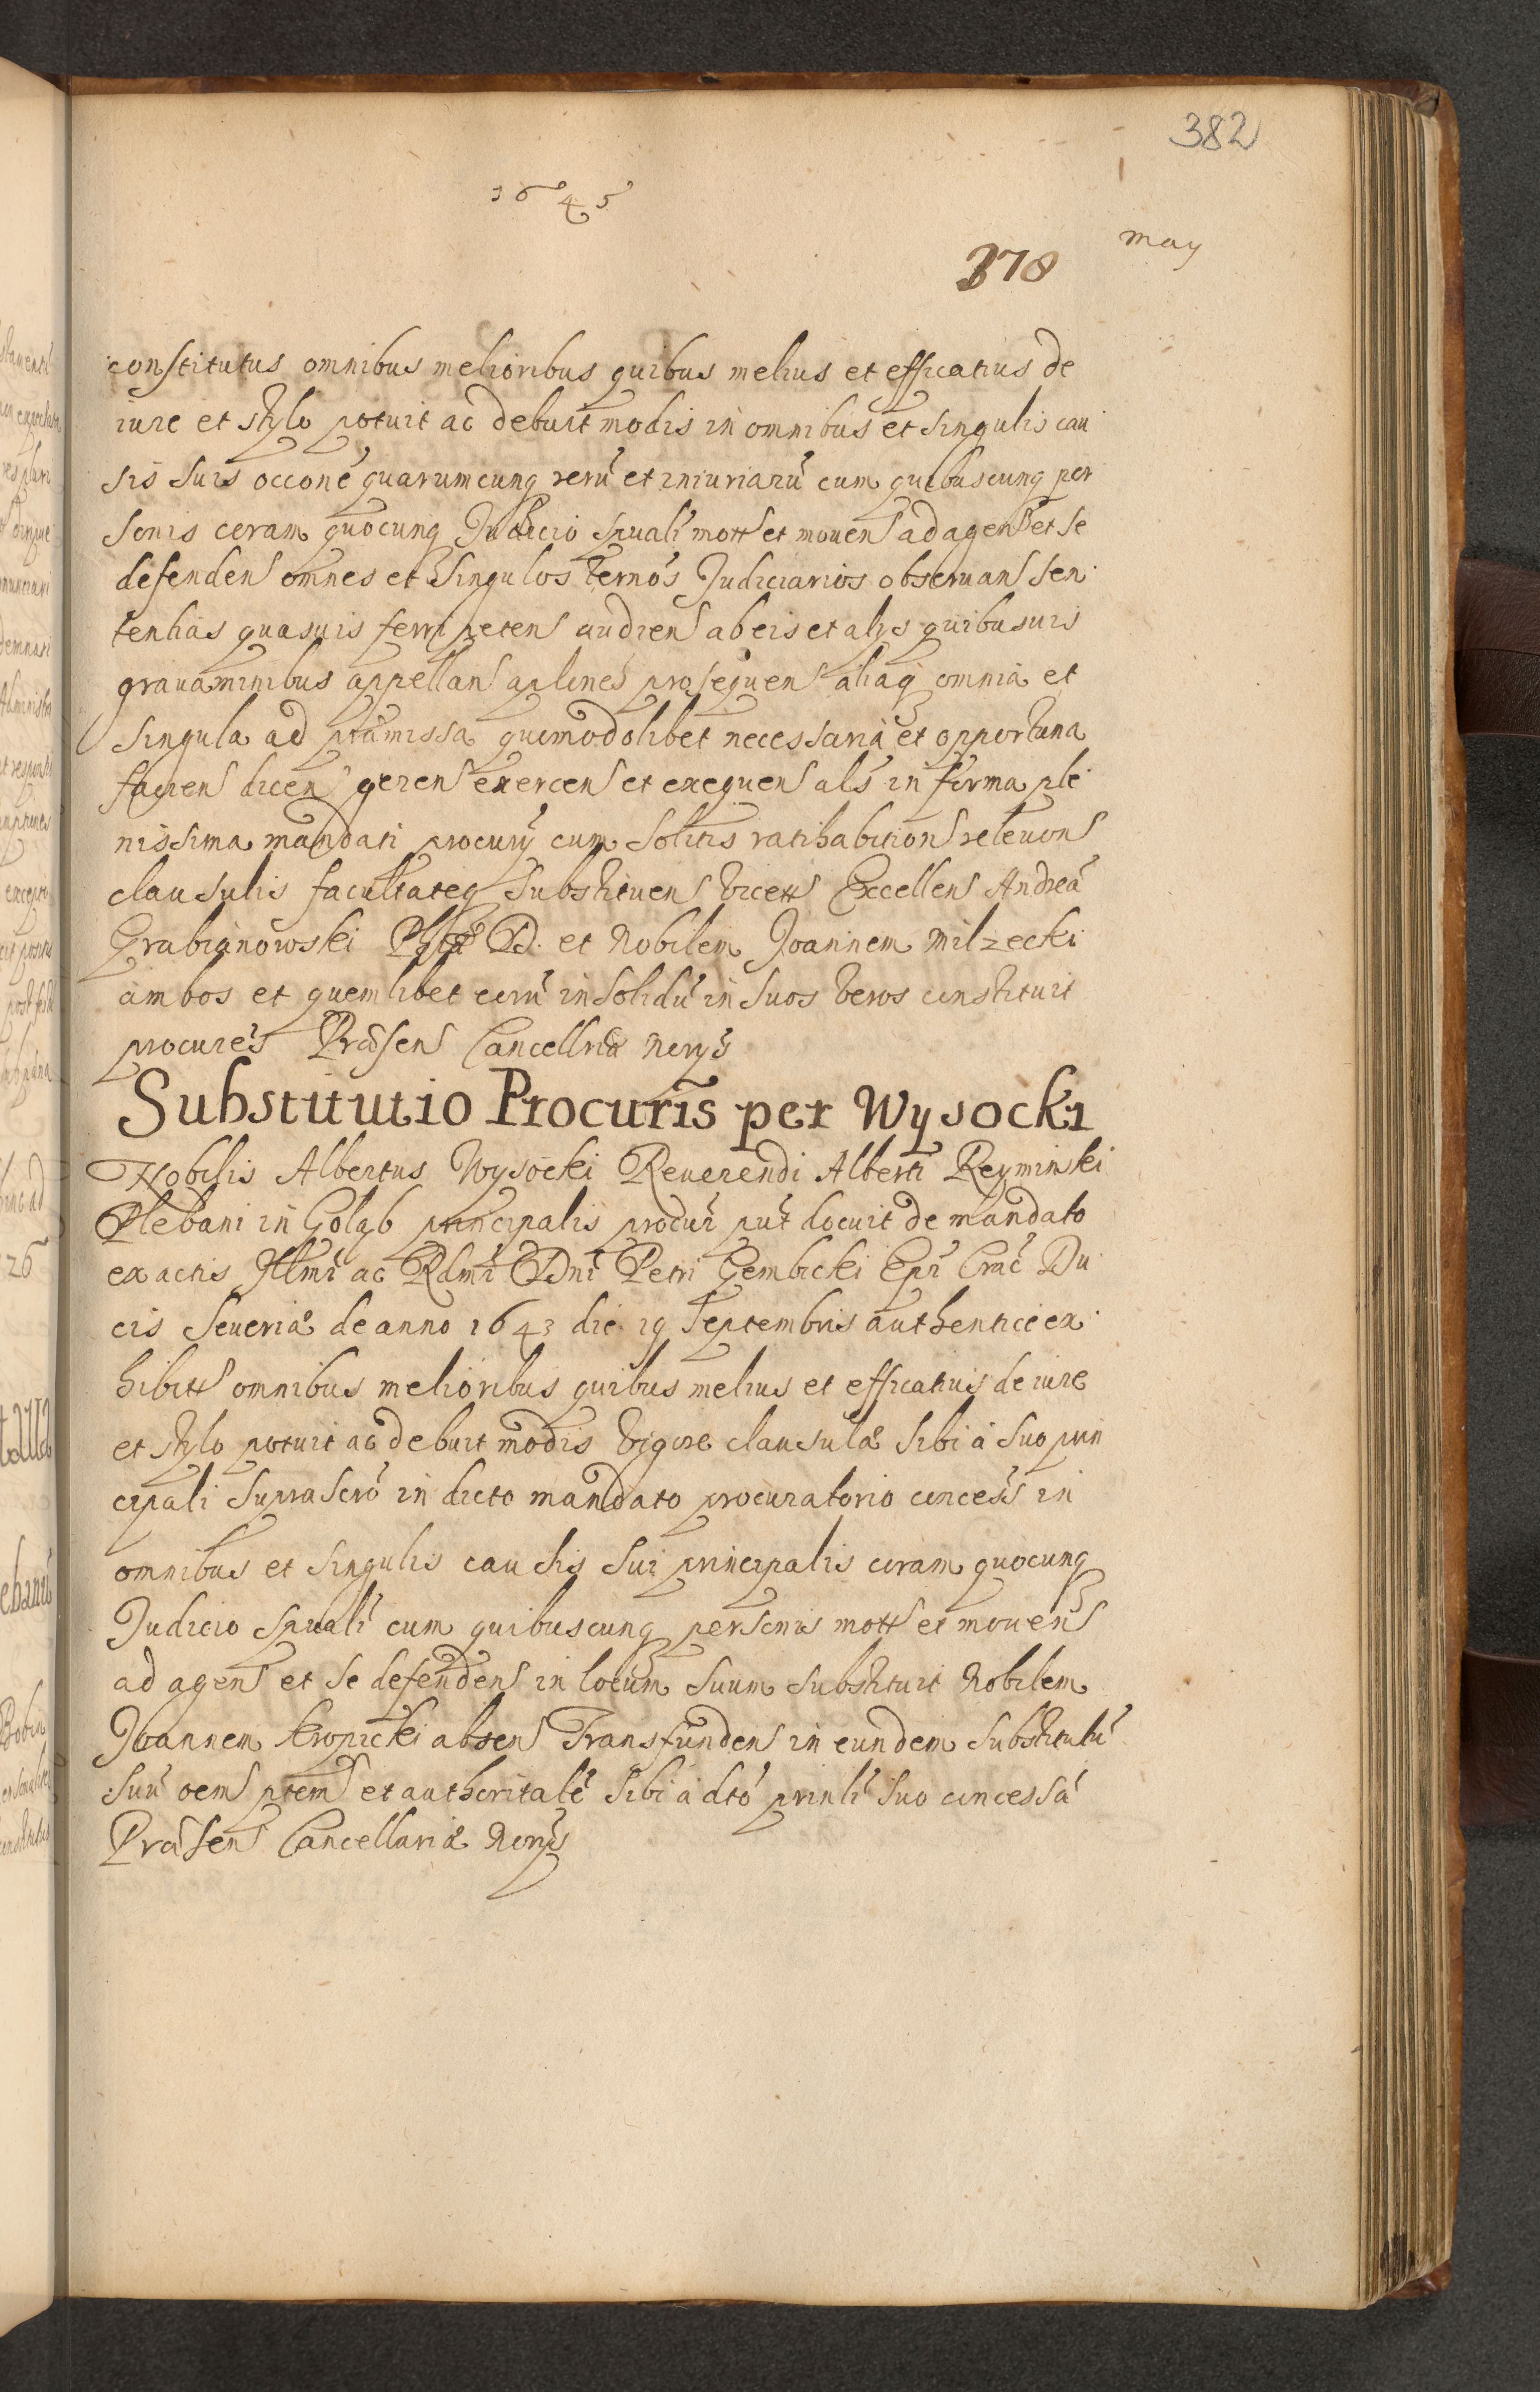 382
1645
378
may
constitutus omnibus melioribus quibus melius et efficatius de
iure et stylo potuit ac debuit modis in omnibus et singulis cau
sis suis occone quarumcunq rerū et iniuriarū cum quibuscunq per
sonis coram quocunq Judicio spuali mott et mouen ad agen et se
defenden omnes et singulos termos Judiciarios obseruan sen
tentias quasuis ferri peten audien ab eis et alys quibusuis
grauaminibus appellan aplones prosequen aliaq omnia et
singula ad præmissa quomodolibet necessaria et opportuna
facien dicen geren exercen et exequen als in forma ple
nissima mandati procurÿ cum solitis ratihabition releuon
clausulis facultateq substituen vicett Excellen Andreā
Grabianowski D. et Nobilem Joannem Milzecki
ambos et quemlibet eorū in solidū in suos veros constituit
procures Præsen Cancellriæ Norÿs
Substitutio Procuris per Wysocki
Nobilis Albertus Wysocki Reuerendi Alberti Reyminski
Plebani in Goląb principalis procur put docuit de mandato
ex actis Illmi ac Rdmi Dni Petri Gembicki Epi Crac Du
cis Seueriæ de anno 1643 die 19 Septembris authentice ex
hibitt omnibus melioribus quibus melius et efficatius de iure
et stylo potuit ac debuit modis vigore clausulæ sibi a suo prin
cipali suprascro in dicto mandato procuratorio concess in
omnibus et singulis causis sui principalis coram quocunq
Judicio spuali cum quibuscunq personis mott et mouen
ad agen et se defenden in locum suum substituit Nobilem
Joannem Kropicki absen Transfunden in eundem substitutū
suū oem ptem et authoritatē sibi a dto prinli suo concessā
Præsen Cancellariæ Norÿs